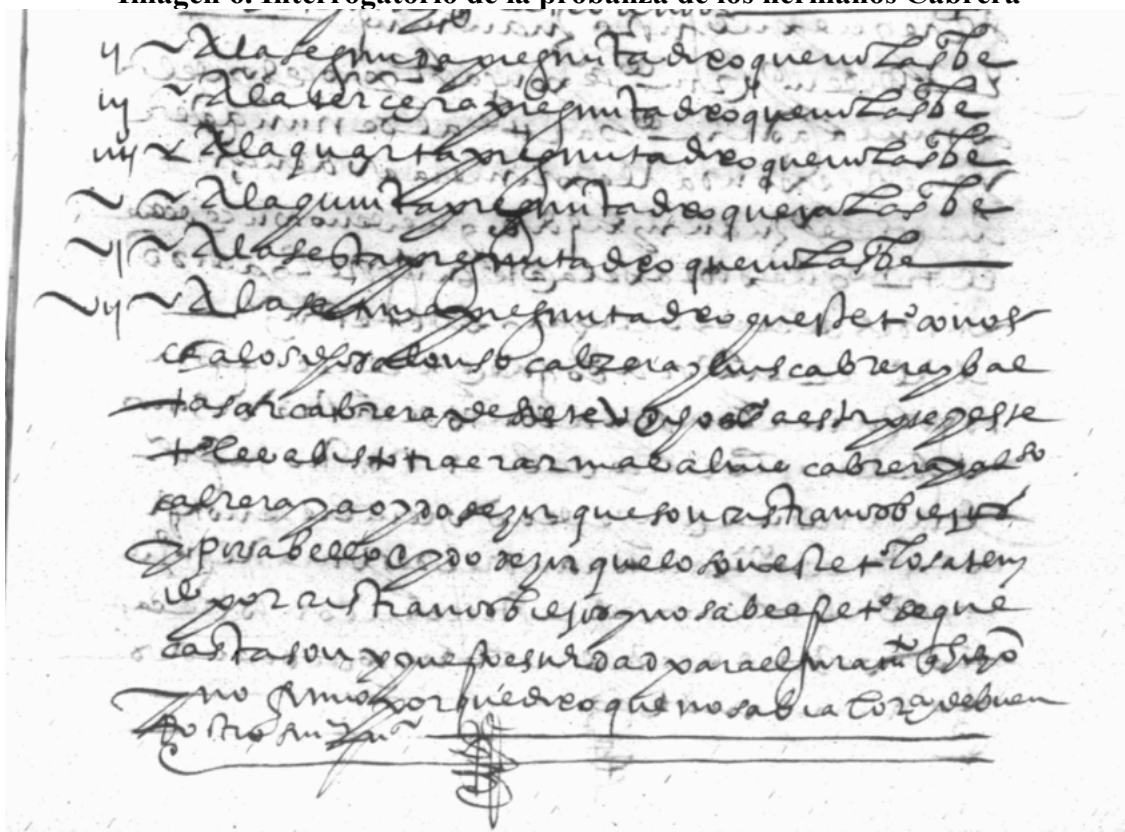 Imagen 6. Interrogatorio de la probanza de los hermanos Cabrera
ij A la segunda pregunta dixo que no la sabe
iij A la tercera pregunta dixo que no la sabe
iiij A la quarta pregunta dixo que no la sabe
v A la quinta pregunta dixo que no la sabe
vj A la sesta pregunta dixo que no la sabe
vij A la setima pregunta dixo que este tº conos
ce a los dhos alonso cabrera y luis cabrera y bal
tasar cabrera y este
tº le a bisto traer armas a luis cabrera y also
cabrera y a oydo dezir que son cristianos biejos
y por abello oydo dezir que lo son este tº los a teni
do por cristianos biejos y no sabe este tº de que
casta son y questo es verdad para el juramtº que hizo
y no firmo porque dixo que no sabia